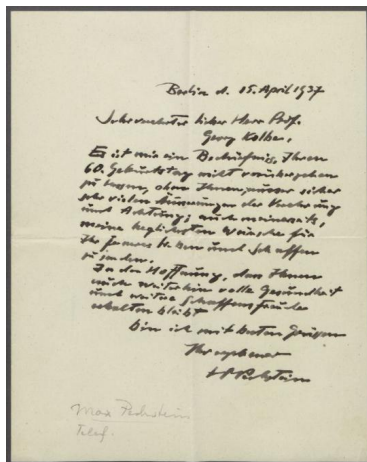 Berlin d. 15. April 1937
Sehr verehrter lieber Herr Prof.
Georg Kolbe,
Es ist mir ein Bedürfnis, Ihren
60. Geburtstag nicht vorübergehen
zu lassen, ohne Ihnen, ausser sicher
sehr vielen Äusserungen der Verehrung
und Achtung, auch meinerseits,
meine herzlichsten Wünsche für
Ihr ferneres Leben und Schaffen
zu senden.
In der Hoffnung, dass Ihnen
auch weiterhin volle Gesundheit
und weitere Schaffensfreude
erhalten bleibt
bin ich mit besten Grüssen
Ihr ergebener
HMPechstein
Max Pechstein